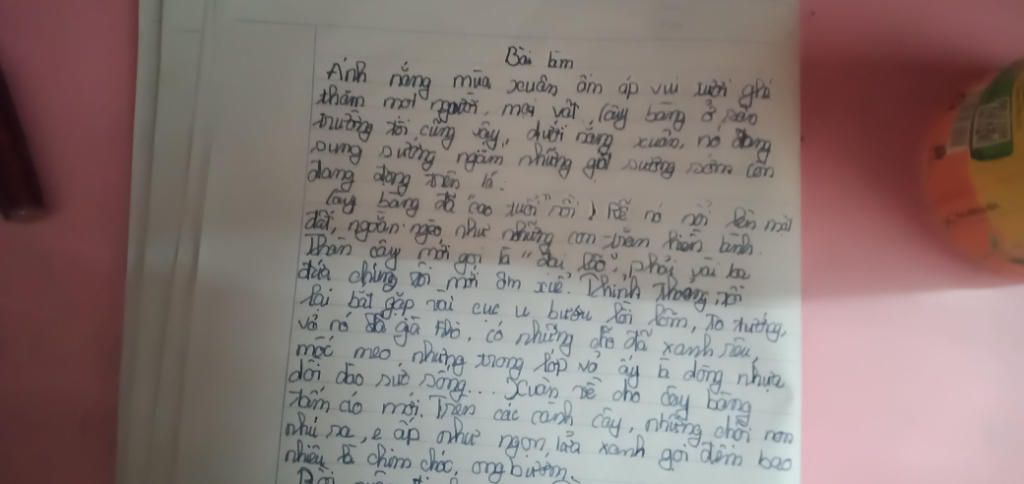 Bài làm
Ánh nắng mùa xuân ấm áp vui tươi ghé
thăm mọi người, mọi vật. Cây bàng ở sân
trường tôi cũng vậy, dưới nắng xuân, nó đang
sung sướng ngậm những giọt sương sớm còn
đang đọng trên lá.
Cây bàng đã "cao tuổi" rồi) Rễ nó nổi lên mặt
đất, ngoằn ngoèo như những con trăn hiền lành.
Thân cây mới gọi là "đại lão", phải vài ba
đứa chúng tôi mới ôm xuể. Thỉnh thoảng, tôi
lại bắt gặp vài cục u bướu lồi lõm, to tướng,
vỏ nó đã già khô, có những chỗ đã xanh rêu,
mốc meo nhưng trong lớp vỏ ấy là dòng nhựa
dồi dào sức sống... Xuân về cho cây bàng
tấm áo mới. Trên các cành cây, những chồi non
nhú ra, e ấp như ngọn lửa xanh gọi đến bao
nhiêu là chim chóc, ong bướm.